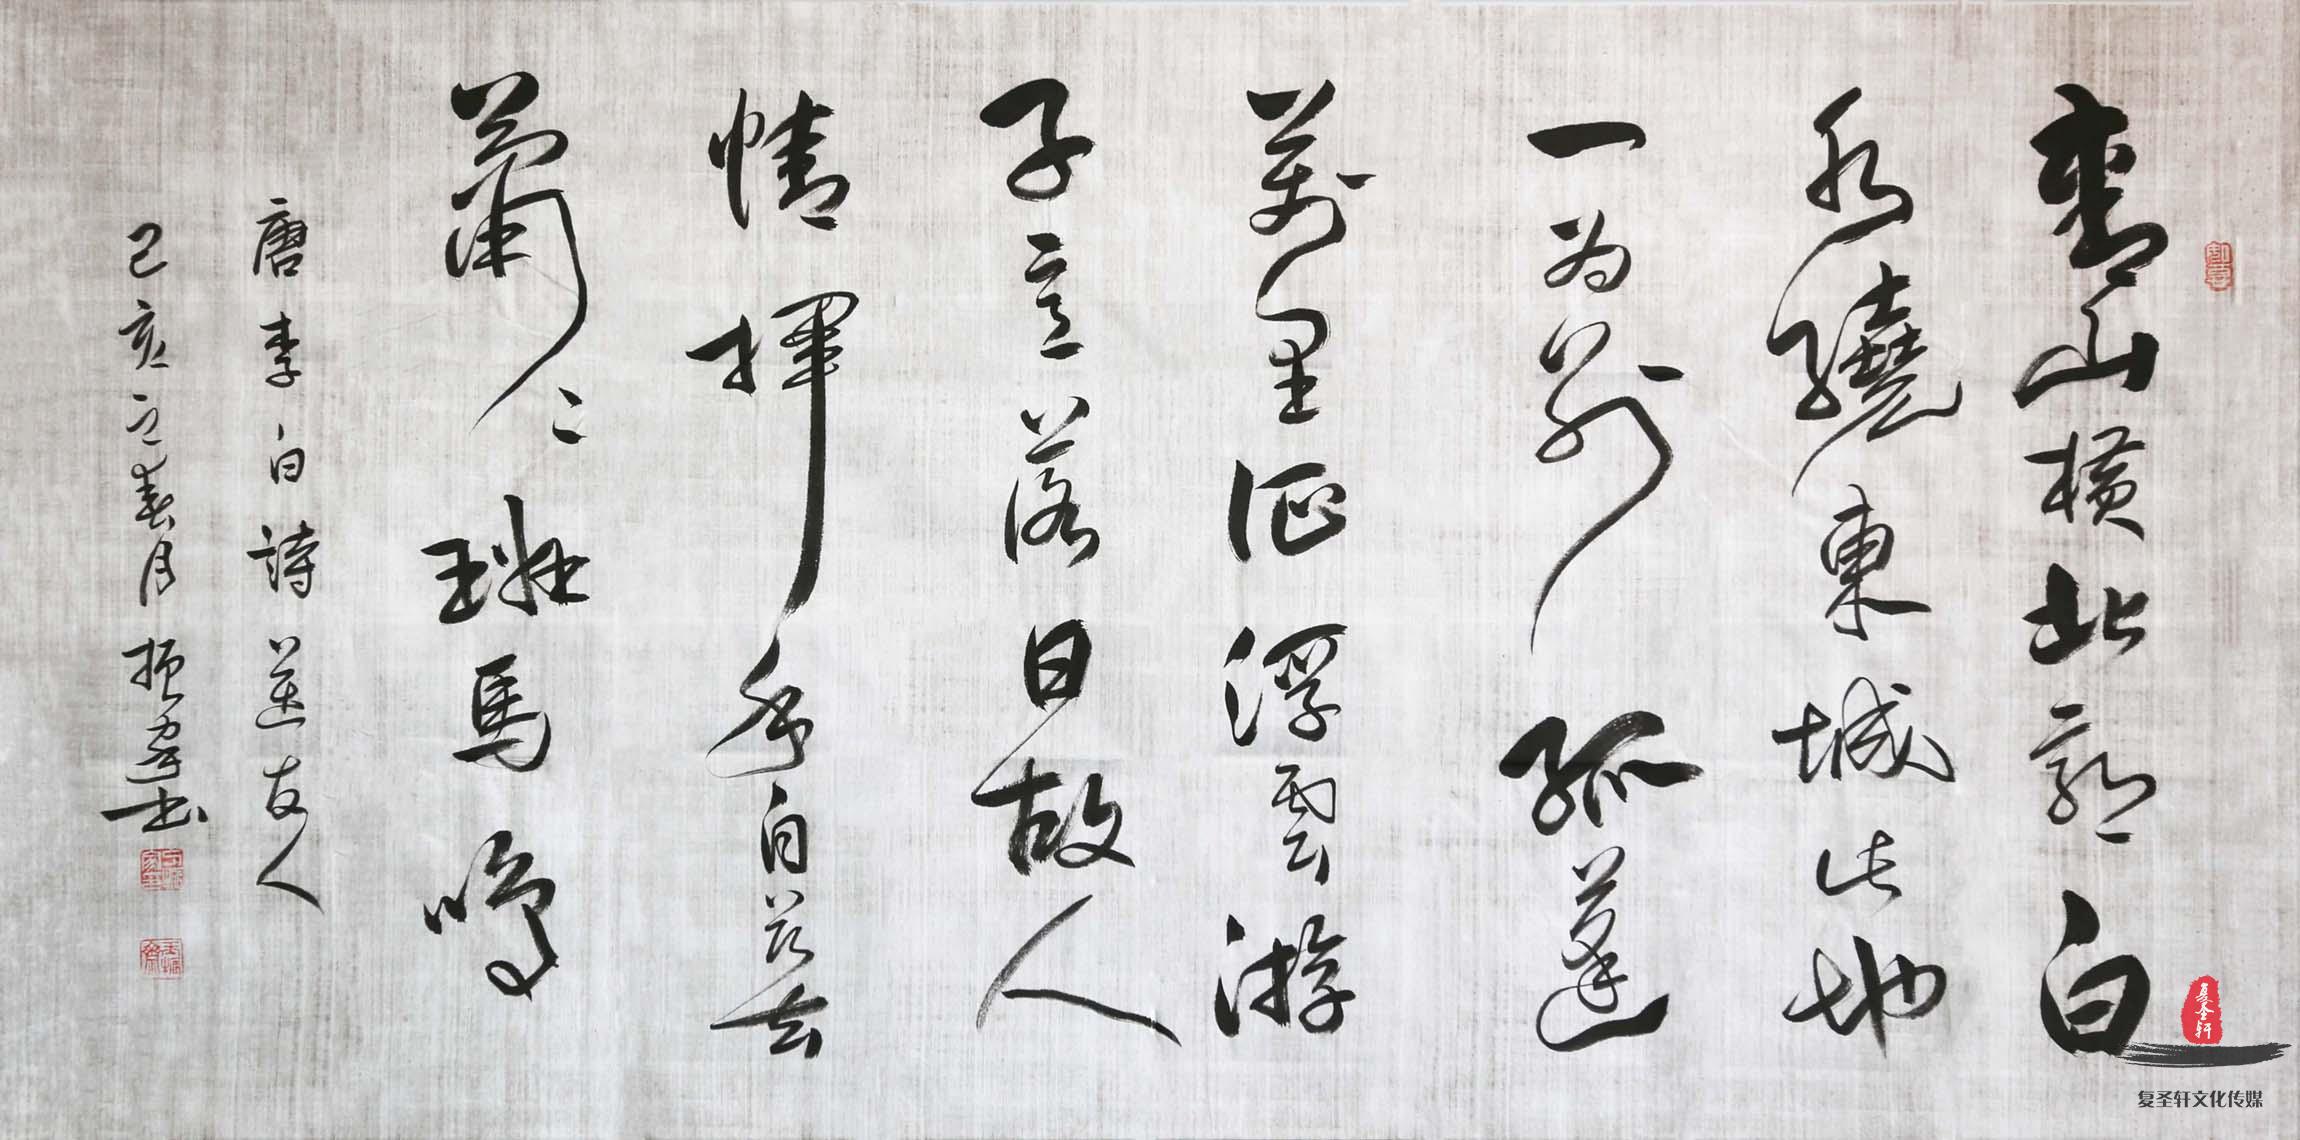 青山橫北郭白
水繞東城此地
一為別孤蓬
萬里征浮雲游
子意落日故人
情揮手自茲去
蕭〻班馬鳴
唐李白詩送友人
己亥之春月振書
复圣轩
复圣轩文化传媒